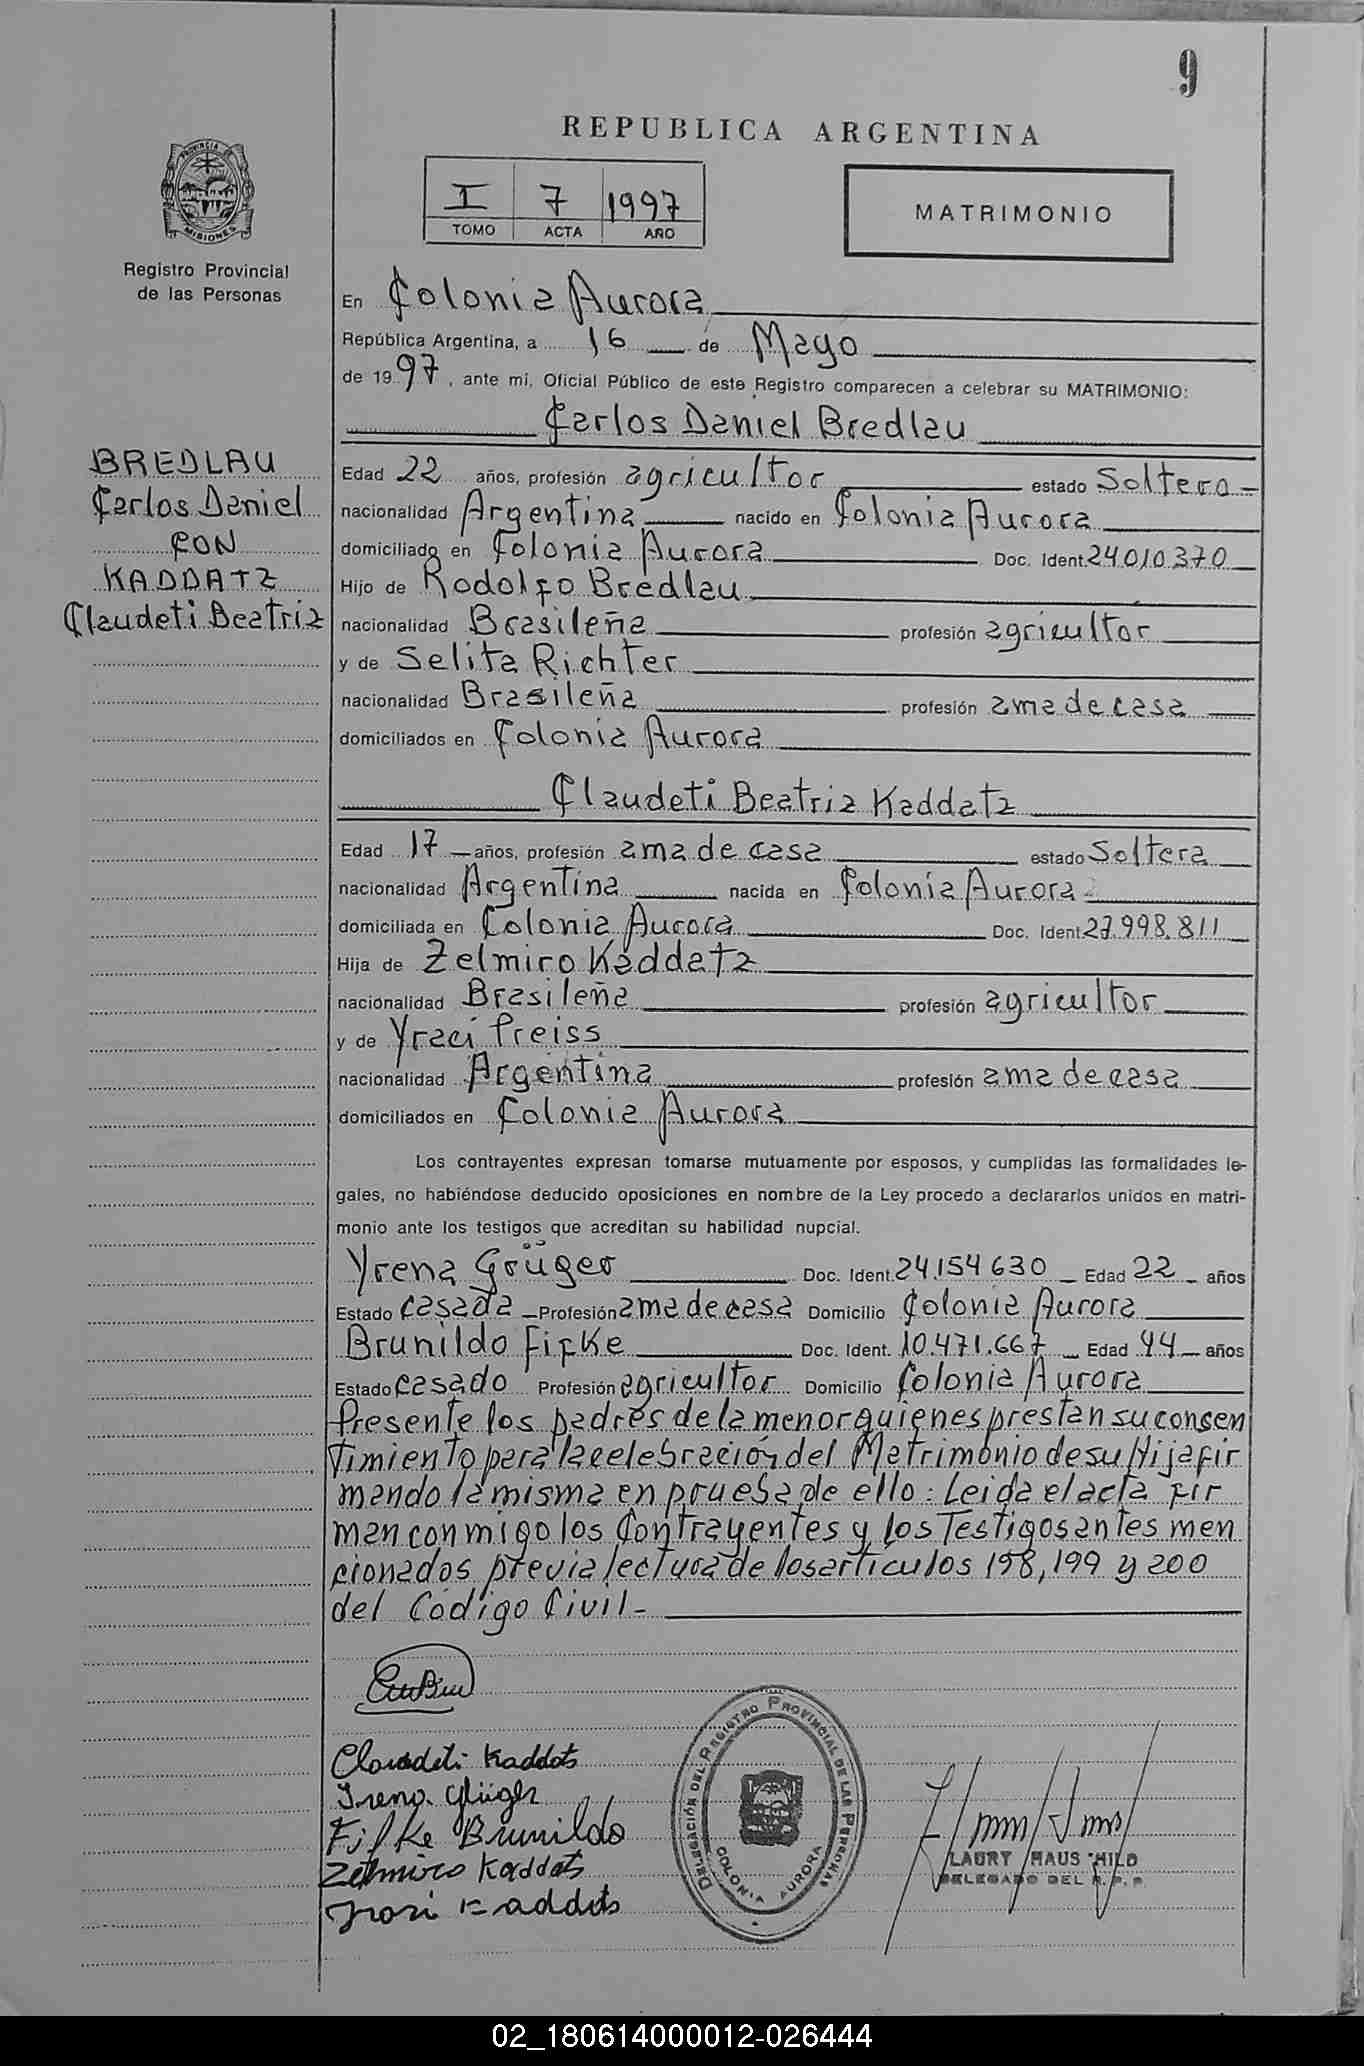 9
REPUBLICA ARGENTINA
PROVINCIA DE
MISIONES
I 7 1997
TOMO ACTA AÑO
MATRIMONIO
Registro Provincial
de las Personas
En Colonia Aurora
República Argentina, a 16 de Mayo
de 1997, ante mí, Oficial Público de este Registro comparecen a celebrar su MATRIMONIO:
Carlos Daniel Bredlau
BREDLAU
Carlos Daniel
CON
KADDATZ
Claudeti Beatriz
Edad 22 años, profesión agricultor estado Soltero
nacionalidad Argentina nacido en Colonia Aurora
domiciliado en Colonia Aurora Doc. Ident. 24.010.370
Hijo de Rodolfo Bredlau
nacionalidad Brasileña profesión agricultor
y de Selita Richter
nacionalidad Brasileña profesión ama de casa
domiciliados en Colonia Aurora
Claudeti Beatriz Kaddatz
Edad 17 años, profesión ama de casa estado Soltera
nacionalidad Argentina nacida en Colonia Aurora
domiciliada en Colonia Aurora Doc. Ident. 27.998.811
Hija de Zelmiro Kaddatz
nacionalidad Brasileña profesión agricultor
y de Yraci Preiss
nacionalidad Argentina profesión ama de casa
domiciliados en Colonia Aurora
Los contrayentes expresan tomarse mutuamente por esposos, y cumplidas las formalidades le-
gales, no habiéndose deducido oposiciones en nombre de la Ley procedo a declararlos unidos en matri-
monio ante los testigos que acreditan su habilidad nupcial.
Yrena Grüger Doc. Ident. 24.154.630 Edad 22 años
Estado Casada Profesión ama de casa Domicilio Colonia Aurora
Brunildo Fifke Doc. Ident. 10.471.667 Edad 44 años
Estado casado Profesión agricultor Domicilio Colonia Aurora
Presente los padres de la menor quienes prestan su consen
timiento para la celebración del Matrimonio de su Hija fir
mando la misma en prueba de ello: Leida el acta fir
man conmigo los Contrayentes y los Testigos antes men
cionados previa lectura de los artículos 198, 199 y 200
del Código Civil-
Claudeti Kaddatz
Fifke Brunildo
Zelmiro Kaddatz
Kaddatz
DELEGACIÓN DEL REGISTRO PROVINCIAL DE LAS PERSONAS
COLONIA AURORA
LAURY HAUS HILD
DELEGADO DEL R. P. P.
02_180614000012-026444